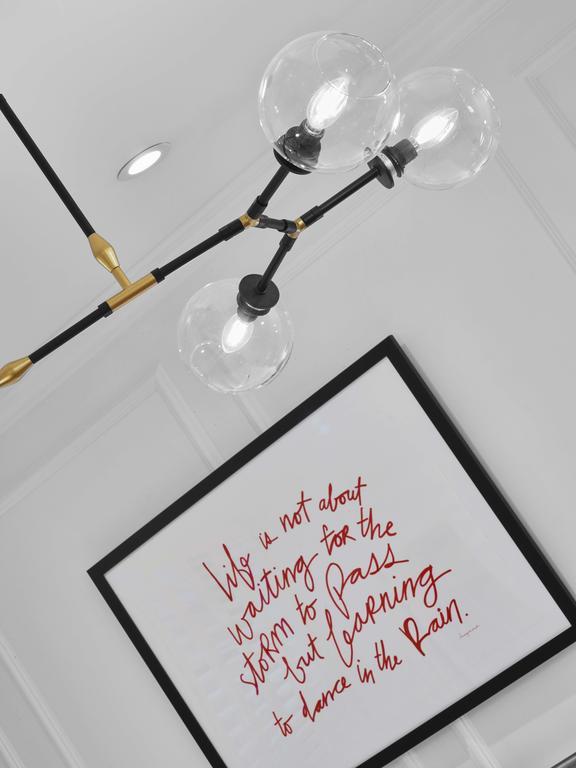 Life is not about
waiting for the
storm to pass
but learning
to dance in the Rain.